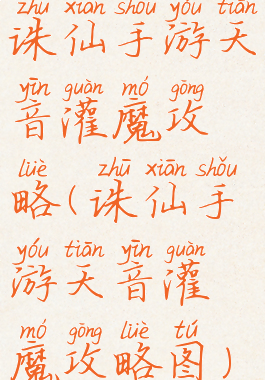 zhū xiān shǒu yóu tiān
诛仙手游天
yīn guàn mó gōng
音灌魔攻
lüè zhū xiān shǒu
略(诛仙手
yóu tiān yīn guàn
游天音灌
mó gōng lüè tú
魔攻略图)